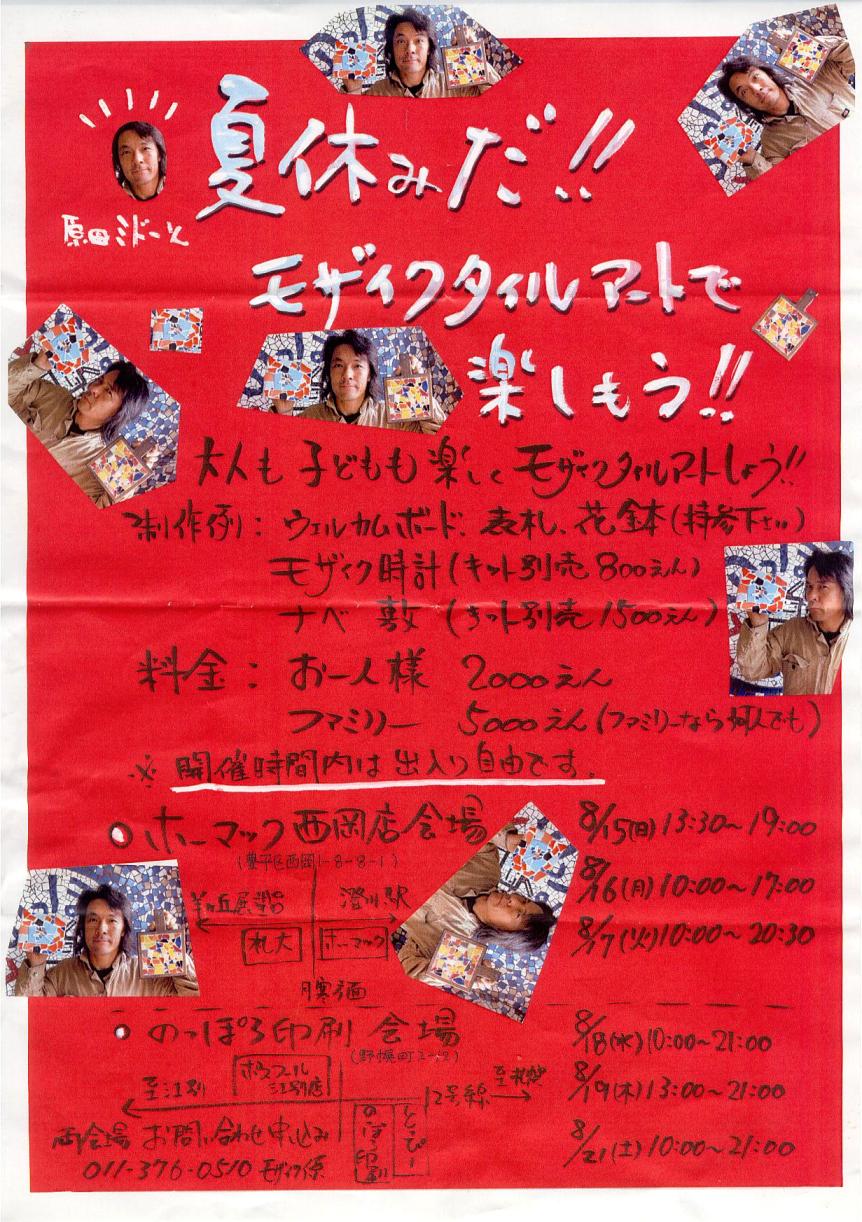 夏休みだ!!
原田ミドーさん
モザイクタイルアートで
楽しもう!!
大人も子どもも楽しくモザイクタイルアートしよう!!
制作例:ウェルカムボード、表札、花鉢(持参下さい)
モザイク時計(キット別売800えん)
ナベ敷(キット別売1500えん)
料金:お一人様 2000えん
ファミリー 5000えん(ファミリーなら何人でも)
※開催時間内は出入り自由です。
ホーマック西岡店会場
(豊平区西岡1-8-8-1)
8/15(日)13:30〜19:00
8/16(月)10:00〜17:00
8/17(火)10:00〜20:30
羊ヶ丘展望台
澄川駅
札大
ホーマック
月寒方面
のっぽろ印刷会場
(野幌町2-12)
8/18(水)10:00〜21:00
8/19(木)13:00〜21:00
8/21(土)10:00〜21:00
至江別
ポスフール
江別店
12号線
至札幌
のっぽろ印刷
とっぴー
両会場 お問い合わせ申し込み
011-376-0510 モザイク係